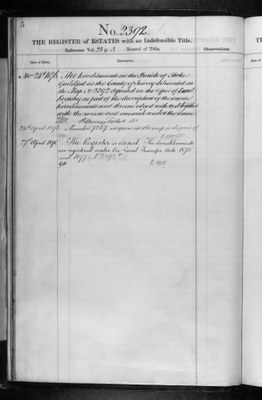 5
No. 2392
THE REGISTER of ESTATES with an Indefeasible Title.
Reference Vol. 28 p. 5 Record of Title.
Date of Entry.
Description.
Observations.
Nov 24th 1876 The hereditaments in the Parish of Stoke
Guildford in the County of Surrey delineated on
the Map No 2392 deposited in the Office of Land
Registry as part of the description of the same
hereditaments and thereon edged with red together
with the mines and minerals under the same
24th April 1896 Number 9267 is given on the map in lieu of
27th April 1896 The Register is closed. The hereditaments
are registered under the Land Transfer Acts 1875
and 1897 No 2392